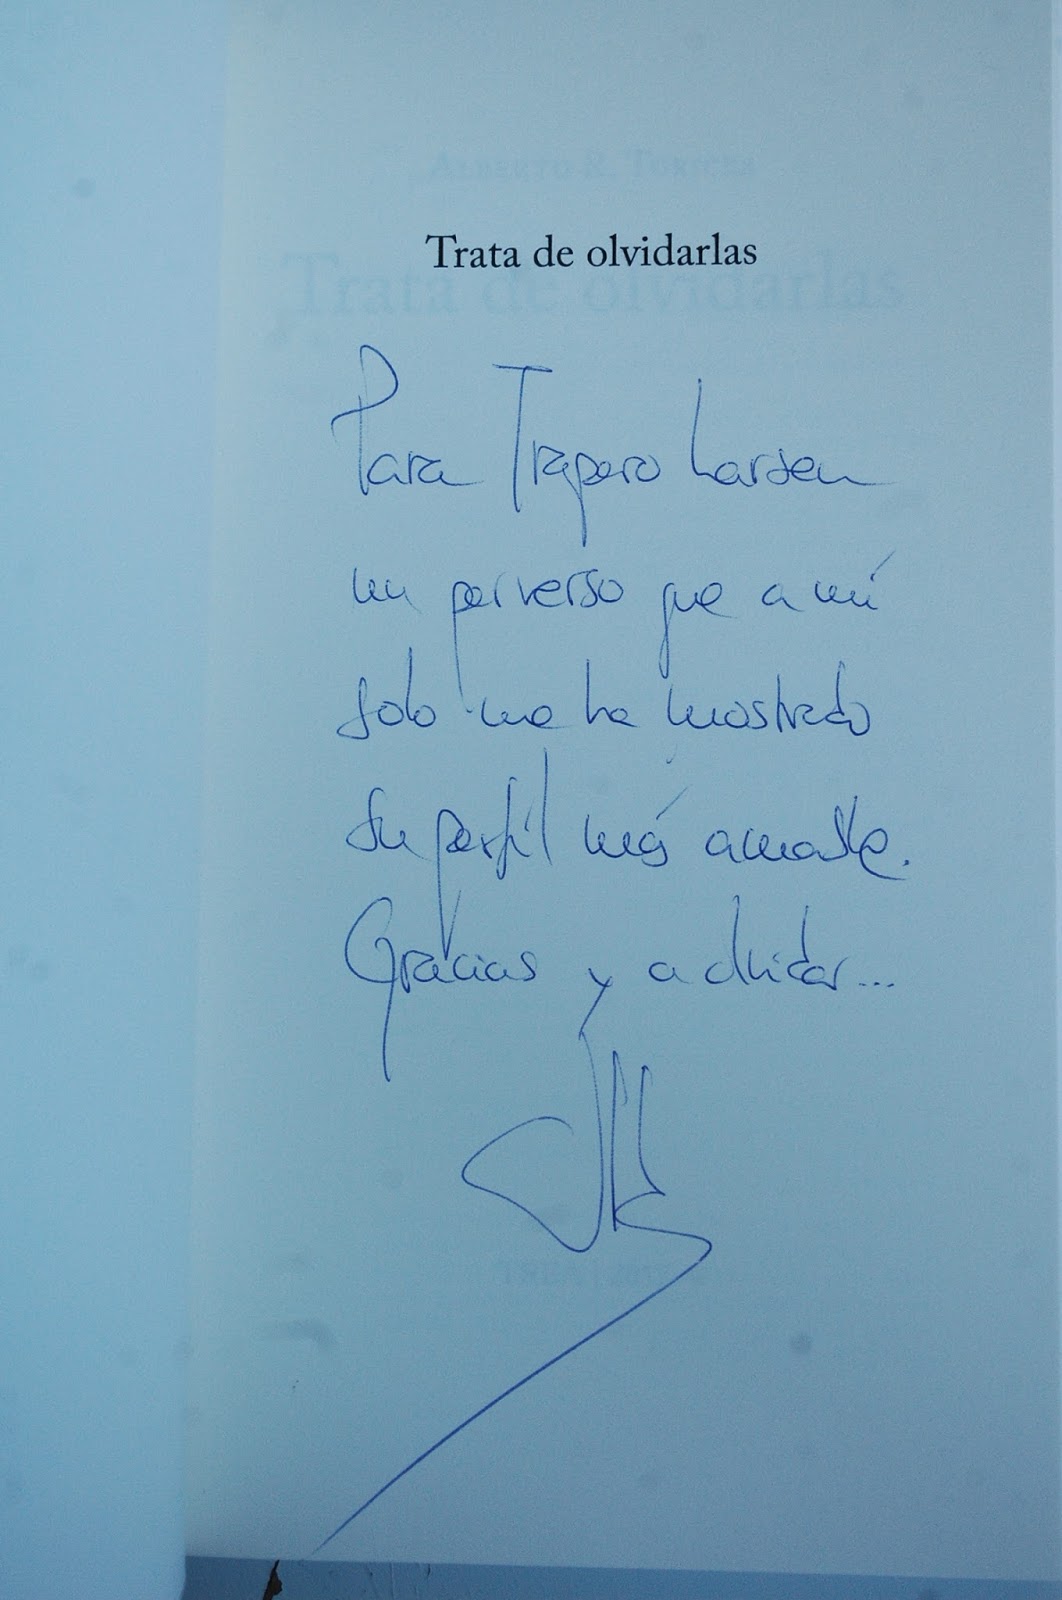 ALBERTO R. TORICES
Trata de olvidarlas
Trata de olvidarlas
Para Trapero Larsen
un perverso que a mí
solo me ha mostrado
su perfil más amable.
Gracias y a olvidar...